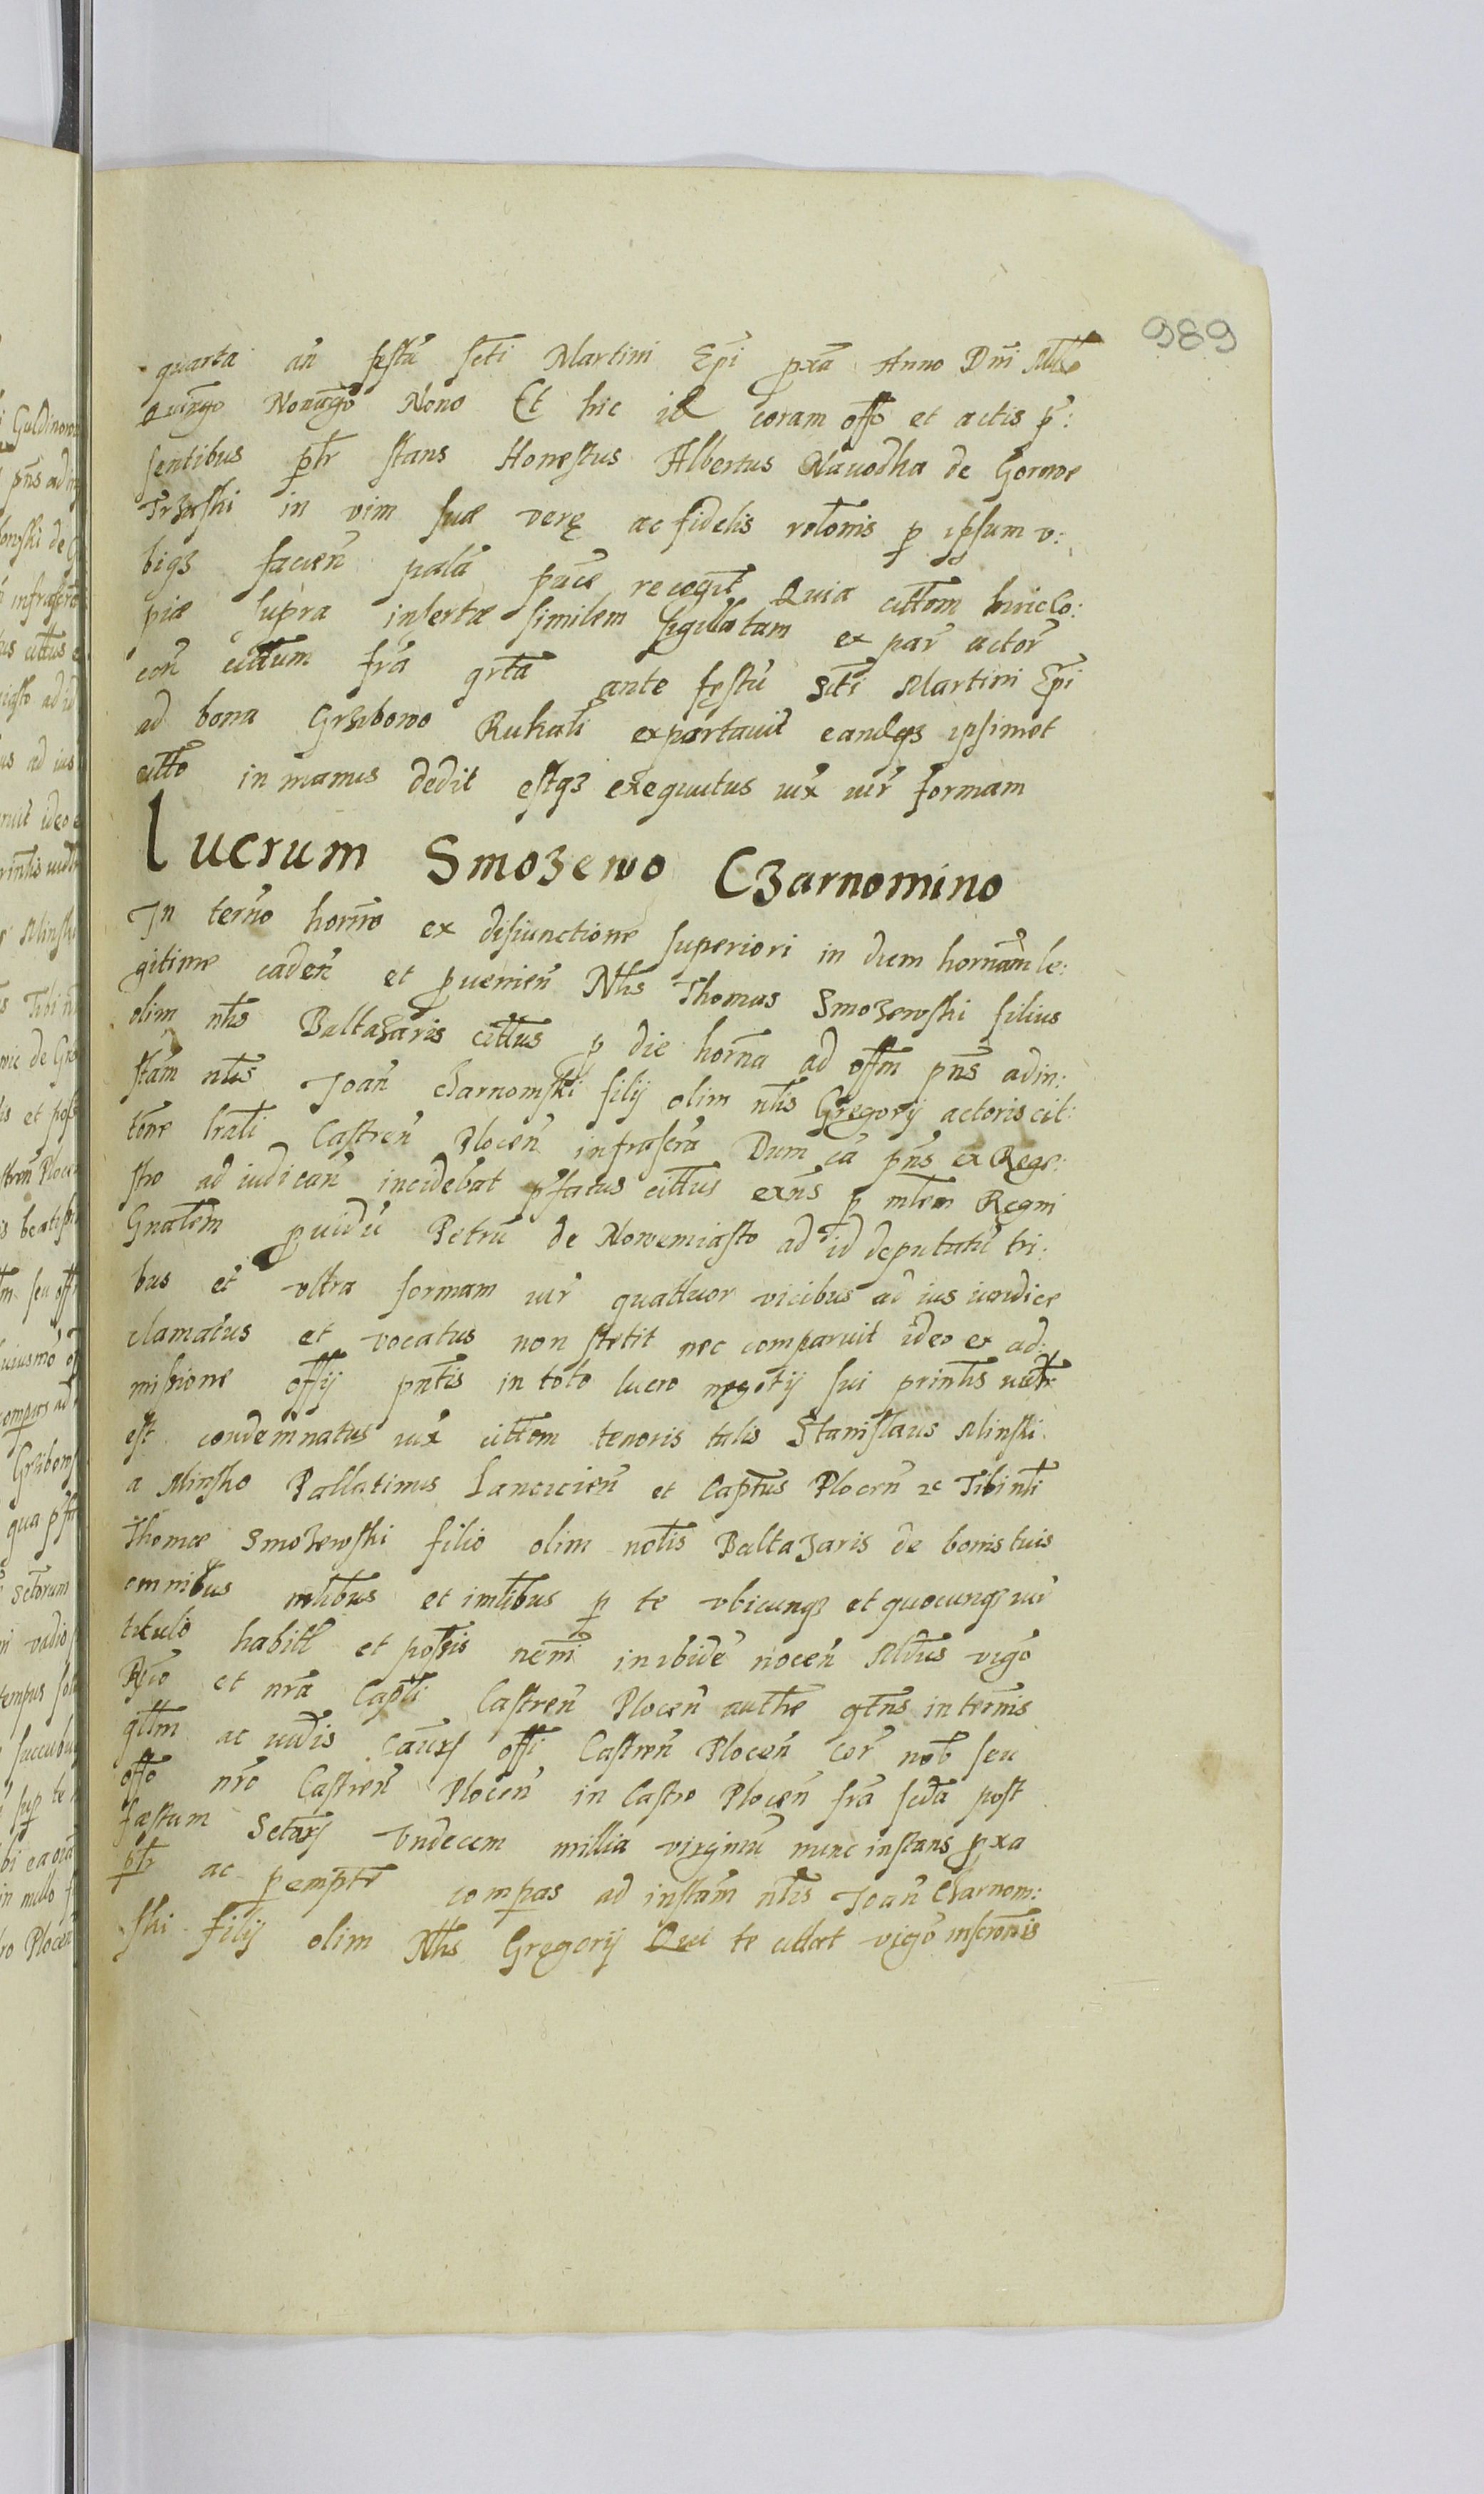 989
quarta an̄ festū sc̄ti Martini Ep̄i pxā Anno Dn̄i Mil̄lo
Quin̄go Nonāgo Nono Et hic id̄ coram off̄o et actis p̄:
sentibus pt̄r stans Honestus Albertus Nawodka de Gorne
Trzaski in vim suæ verę ac fidelis rel̄onis p ipsum v:
biqȝ facien̄ palā pu͞ce recogt̄ Quia citt̄em huic Co:
piæ supra insertæ similem sigillatam ex par̄ actor̄
con̄ citt̄um fr̄a qrt̄a ante festū Sct̄i Martini Ep̄i
ad bona Grzibowo Rukali exportauit eandqȝ ipsimet
citt̄o in manus dedit estqȝ exequutus iux̄ iur̄ formam
Lucrum Smozewo Czarnomino
In term̄o horn̄o ex disiunctione superiori in diem hornām le:
gitime caden̄ et puenien̄ Nl̄is Thomas Smozewski filius
olim nl̄is Baltazaris citt̄us p die horn̄a ad off̄m pn̄s ad in:
stām nl̄is Joan̄ Czarnomski filij olim nl̄is Gregorij actoris cit:
tōne lrāli Castren̄ Plocen̄ infrascrā Dum cā pn̄s ex Rege:
stro ad iudican̄ incidebat p̄fatus citt̄us exn̄s p ml̄em Regni
Gnal̄em puidū Petrū de Nowemiasto ad id deputatū tri:
bus et vltra formam iur̄ quattuor vicibus ad ius iundice
clamatus et vocatus non stetit nec comparuit ideo ex ad:
missione off̄ij pn̄tis in toto lucro negotij sui prin̄lis iudr̄
est condemnatus iux̄ citt̄em tenoris talis Stanislaus Minski
a Minsko Pallatinus Lancicien̄ et Capt̄us Plocen̄ ꝛc Tibi nl̄i
Thomæ Smozewski filio olim nol̄is Baltazaris de bonis tuis
omnibus ml̄ibus et iml̄ibus p te vbicunqȝ et quocunqȝ iur̄
titulo habit̄ et possis nemī in ibidē nocen̄ Md̄us vigo͞
R͞gio et nrā Capt̄li Castren̄ Plocen̄ auth̄e qt̄ns in term̄is
qt̄lm ac iudis Caurȝ off̄i Castren̄ Plocen̄ cor̄ nob̄ seu
off̄o nr̄o Castren̄ Plocen̄ in Castro Plocen̄ fr̄a scd̄a post
fæstum Sctarȝ Vndecem millia virginū nunc instans pxa
pt̄r ac pempt̄r compas ad instām nl̄is Joan̄ Czarnom:
ski filij olim Nl̄is Gregorij Qui te cittat vigo͞ inscrōnis